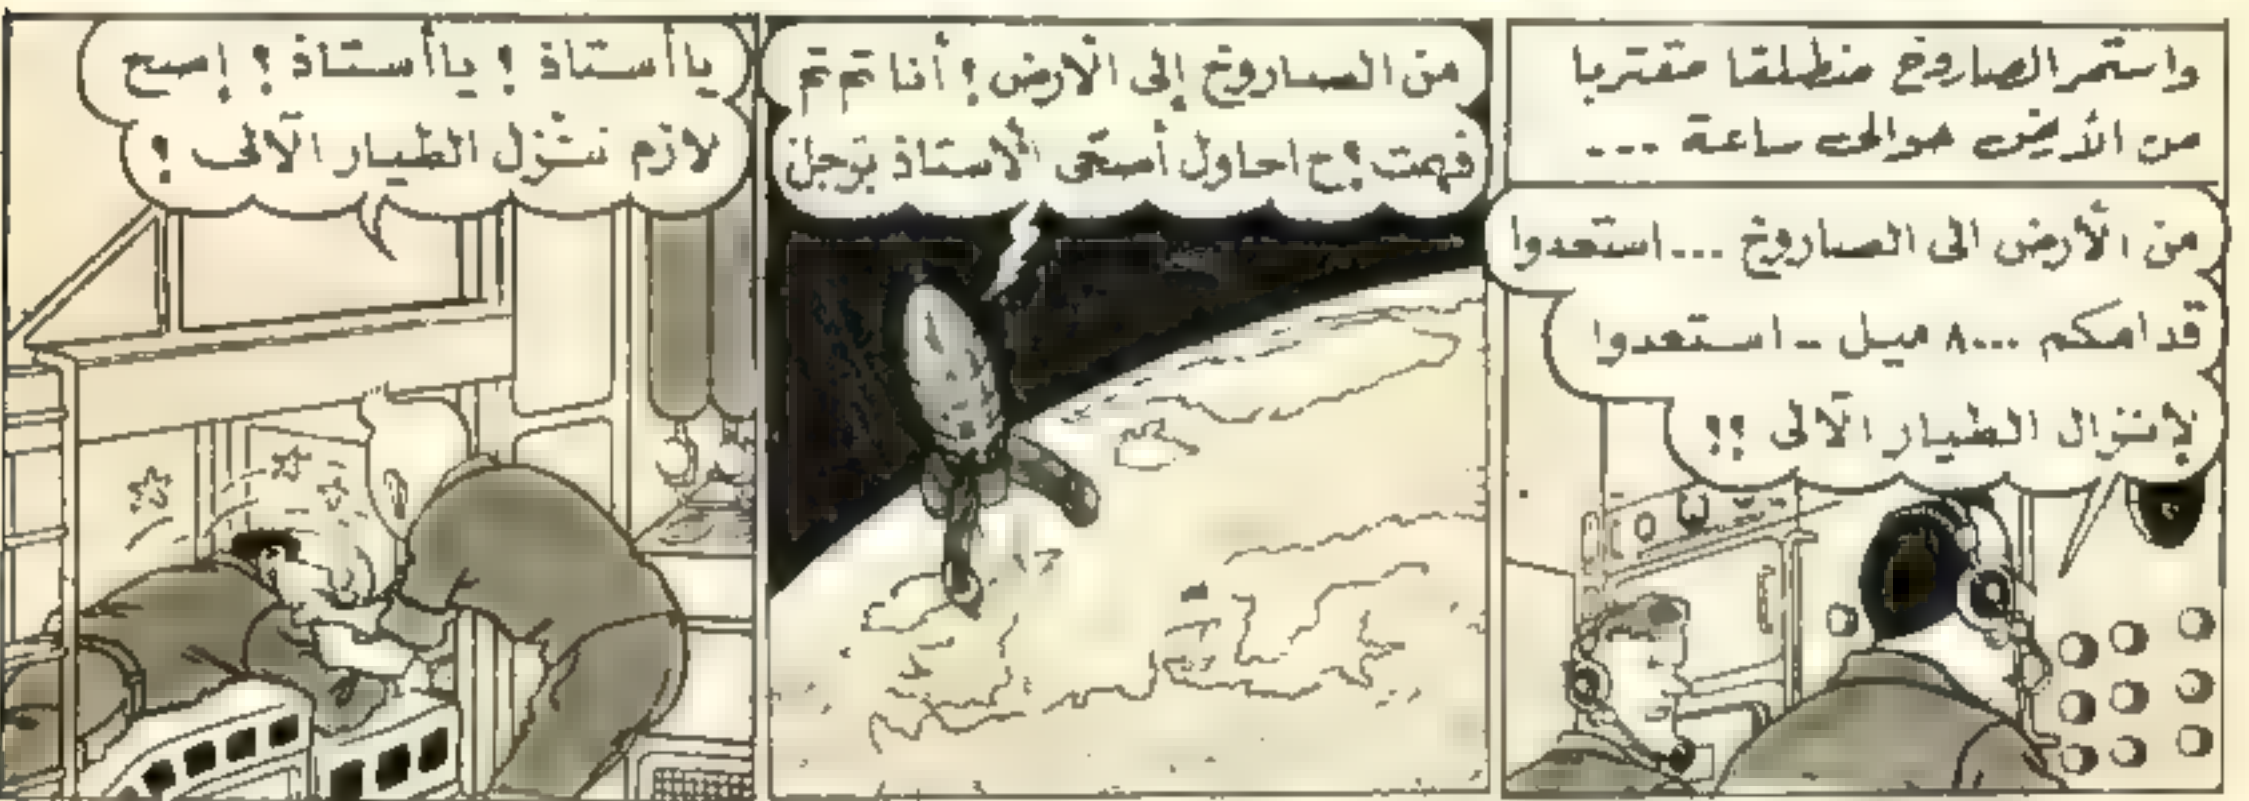 واستمر الصاروخ منطلقا مقتربا
من الأرض حوالى ساعة ...
من الأرض الى الصاروخ ... استعدوا
قدامكم ٨٠٠٠ ميل .. استعدوا
لإنزال الطيار الآلى !!
من الصاروخ إلى الأرض ! أنا تم تم
فهمت ! ح احاول أصحى الأستاذ برجل
ياأستاذ ! ياأستاذ ! إصح
لازم ننزل الطيار الآلى !